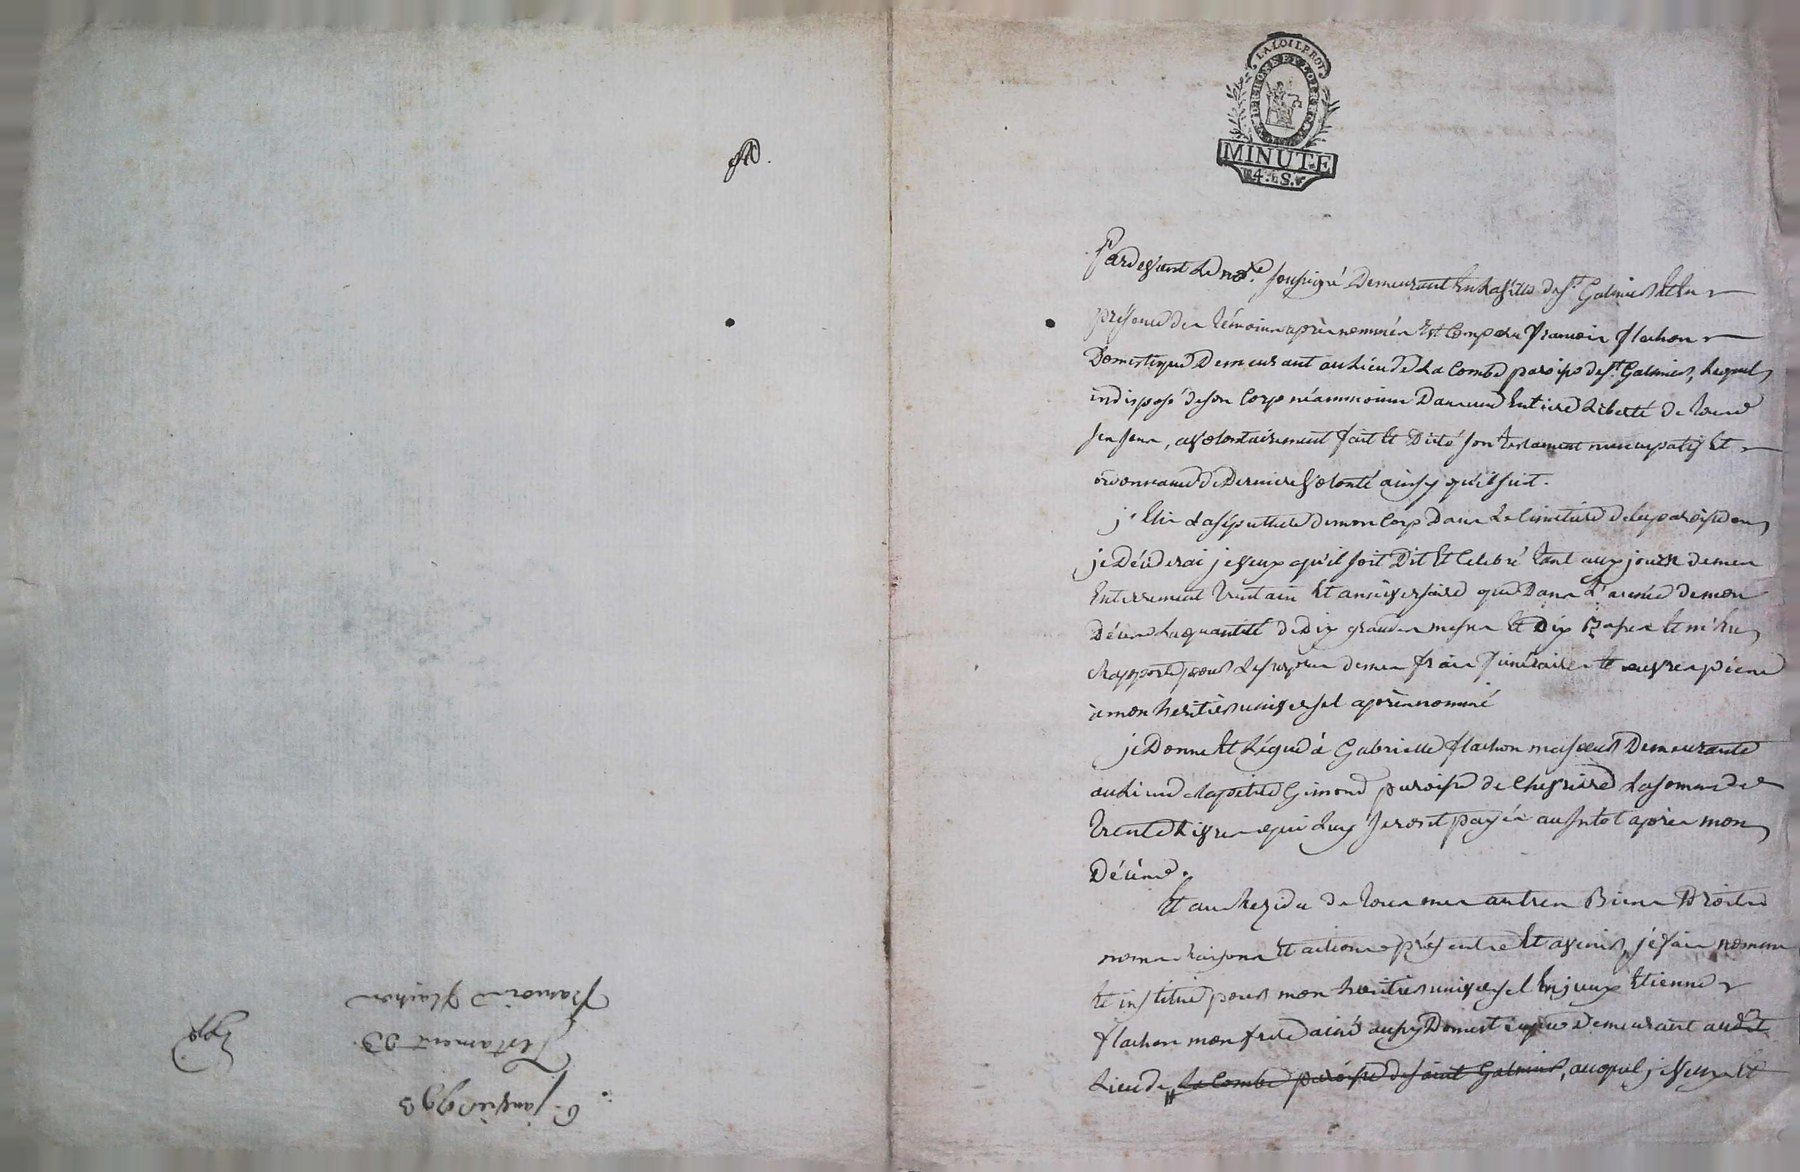 LA LOI LE ROI
MINUTE
4. S.
Pardevant le nore. soussigné Demeurant en la ville de st. Galmier et en
présence des témoins après nommés est comparu françois flachon
Domestique Demeurant au lieu de La Combe paroisse de st. Galmier, lequel
indisposé de son Corps néanmoins Dans une Entiere liberté de tous
ses sens, a volontairement fait et Dicté son testament nuncupatif et
ordonnance De Derniere volonté ainsy qu'il suit.
j'Elis la sépulture de mon Corps Dans le Cimetiere de la paroisse ou
je Déciderai je veux qu'il soit Dit et Celebré tant aux jours de mes
Enterrement trentain et aniversaire que Dans L'année de mon
Décès la quantité de Dix grandes messes et Dix Basses et m'en
Rapporte pour le surplus de mes frais funéraires et œuvres pies
à mon heritier universel après nommé
je Donne et Légue à Gabrielle flachon ma sœur Demeurante
au lieu de la petite Gimond paroisse de Chevrieres La somme de
trente livres qui luy seront payés aussitôt après mon
Décès.
Et au Rezidu de tous mes autres Biens Droits
noms raisons et actions présents et avenir, je fais nomme
et institue pour mon heritier universel Enjeux Etienne
flachon mon frere ainé aussy Domestique Demeurant audit
Lieu de la Combe paroisse de saint Galmier, auquel je veux et
6. janvier 1793
Testament De
françois flachon
Exp.